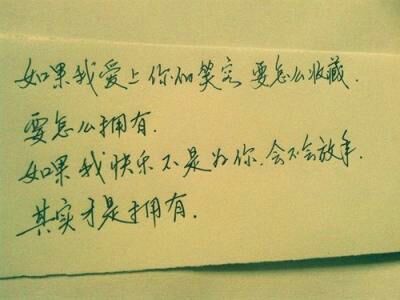 如果我爱上你的笑容 要怎么收藏.
要怎么拥有.
如果我快乐不是为你.会不会放手.
其实才是拥有.